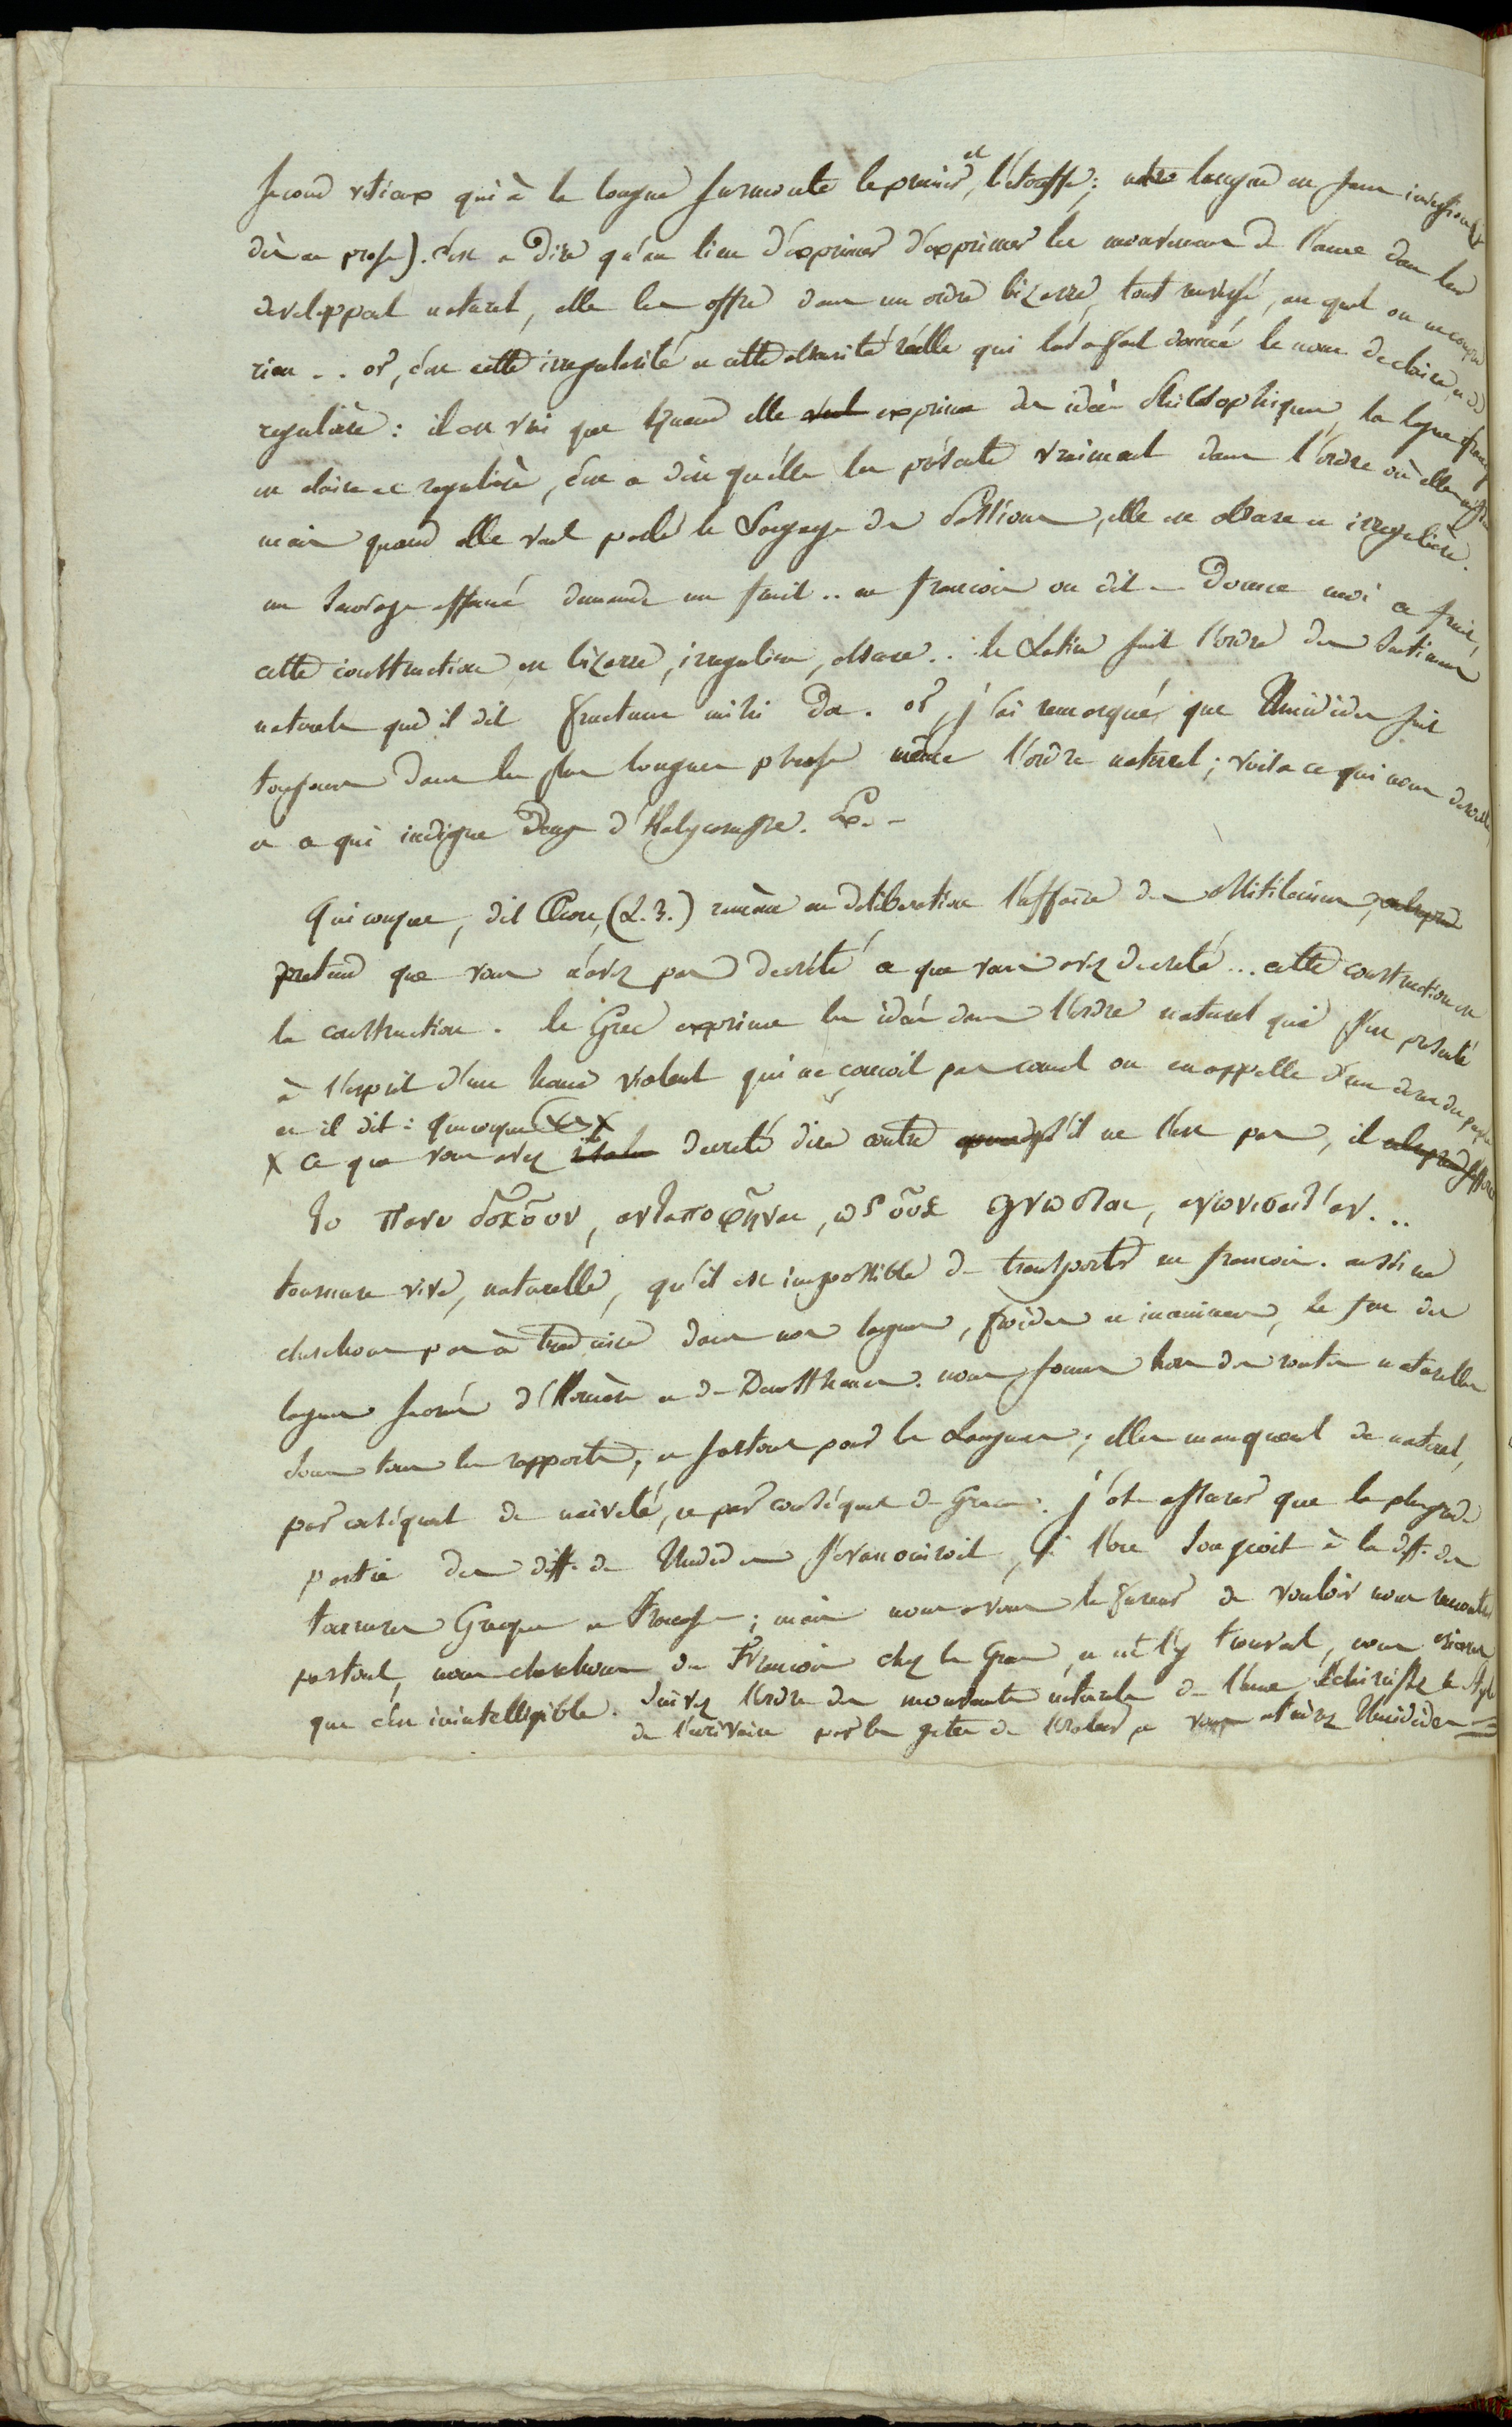 second vitieux qui à la longue surmonte le premier et l'étouffe; notre langue est sans inversions (
dis en prose). c'est a dire qu'au lieu d'exprimer d'exprimer les mouvemens de l'ame dans leur
developpement naturel, elle les offre dans un ordre bizarre, tout renversé, auquel on ne conçoit
rien .. or, c'est cette irregularité et cette obscurité réelle qui lui a fait donner le nom de claire et de
reguliere : il est vrai que quand elle veut exprime des idées philosophiques, la langue française
est claire et reguliere, c'est a dire qu'elle les présente vraiment dans l'ordre où elles
mais quand elle veut parler le Langage des Passions, elle est obscure et irreguliere.
un sauvage affamé demande un fruit .. en françois on dit - Donne moi ce fruit,
cette construction est bizarre, irreguliere, obscure .. le Latin suit l'ordre des sentimens
naturels quand il dit fructum mihi da. or, j'ai remarqué que Thucidides suit
toujours dans les plus longues phrases même l'ordre naturel; voila ce qui nous deroute,
et ce qui indigne Denys d'Halycarnasse. Ex. -
Quiconque, dit Cleon, (L. 3.) remène en deliberation l'affaire des Mitileniens,
pretend que vous n'avez pas decrété ce que vous avez decreté ... cette construction est
la construction. le Grec exprime les idées dans l'ordre naturel qui s'est présenté
à l'esprit d'un homme violent qui ne conçoit pas comment on en appelle d'un decret du peuple
et il dit : quiconque X
X ce que vous avez decreté dire contre s'il ne l'est pas, il
το πανυ δοκουν, ανταποφηναι, ως ουκ εγνωσται, αγωνισαιτ' αν ...
tournure vive, naturelle, qu'il est impossible de transporter en françois. aussi ne
cherchons pas à traduire dans nos langues, froides et inanimées, le feu des
langues sacrées d'Homère et de Demosthenes. nous sommes hors des routes naturelles
sous tous les rapports, et surtout pour les Langues; elles manquent de naturel,
par conséquent de naiveté, et par conséquent de Graces. j'ose assurer que la plus grande
partie des diff. de Thucidides s'evanouiroit, si l'on songeoit à la diff. des
tournures Greques et Françaises; mais nous avons la fureur de vouloir nous rencontrer
partout, nous cherchons du François chez les Grecs, et ne l'y trouvant, nous crions
que c'est inintelligible. suivez l'ordre des mouvements naturels de l'ame éclaircissez le style
de l'ecrivain par les gestes de l'Orateur, et vous suivrez Thucidides =